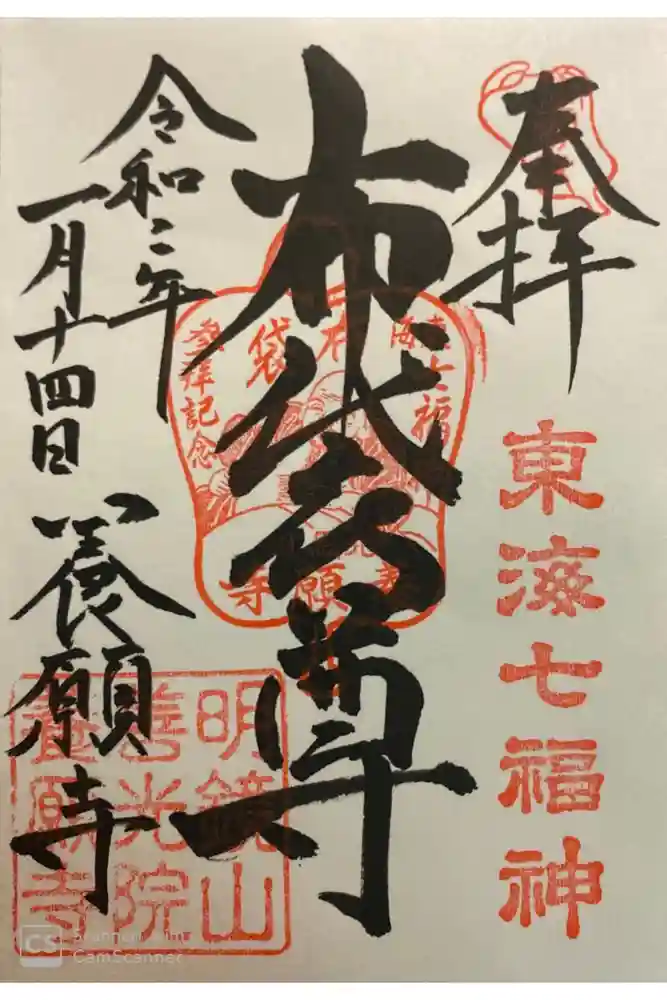 奉拝
東海七福神
布袋尊
東海七福
布袋
参拝記念
養願寺
令和二年
一月十四日
養願寺
明鏡山
善光院
養願寺
CS Scanned with
CamScanner